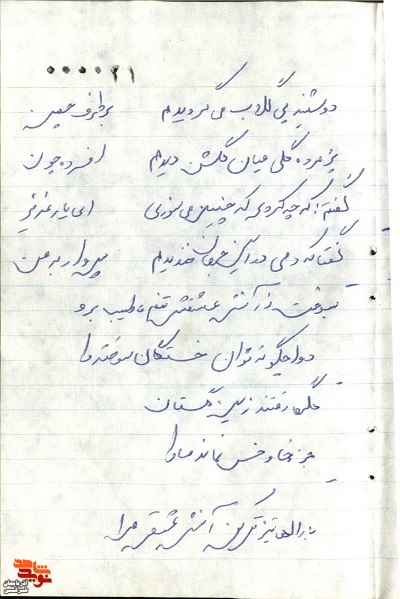 ۰۰۰۰۲۱
دوشینه پی گلاب می گردیدم بر طرف چمن
پژمرده گلی میان گلشن دیدم افسرده چون
گفتم که چه کرده ای که چنین می سوزی ای یار عزیز
گفتا که دمی در این جهان خندیدم پس وای به من
بسوخت ز آتش عشقش تنم طبیب برو
دوا چگونه توان خستگان سوخته را
گلها رفتند زین گلستان
جز خار و خس نماند ما را
بارالها تیزتر کن آتش عشق مرا
نوید شاهد
آذربایجان شرقی